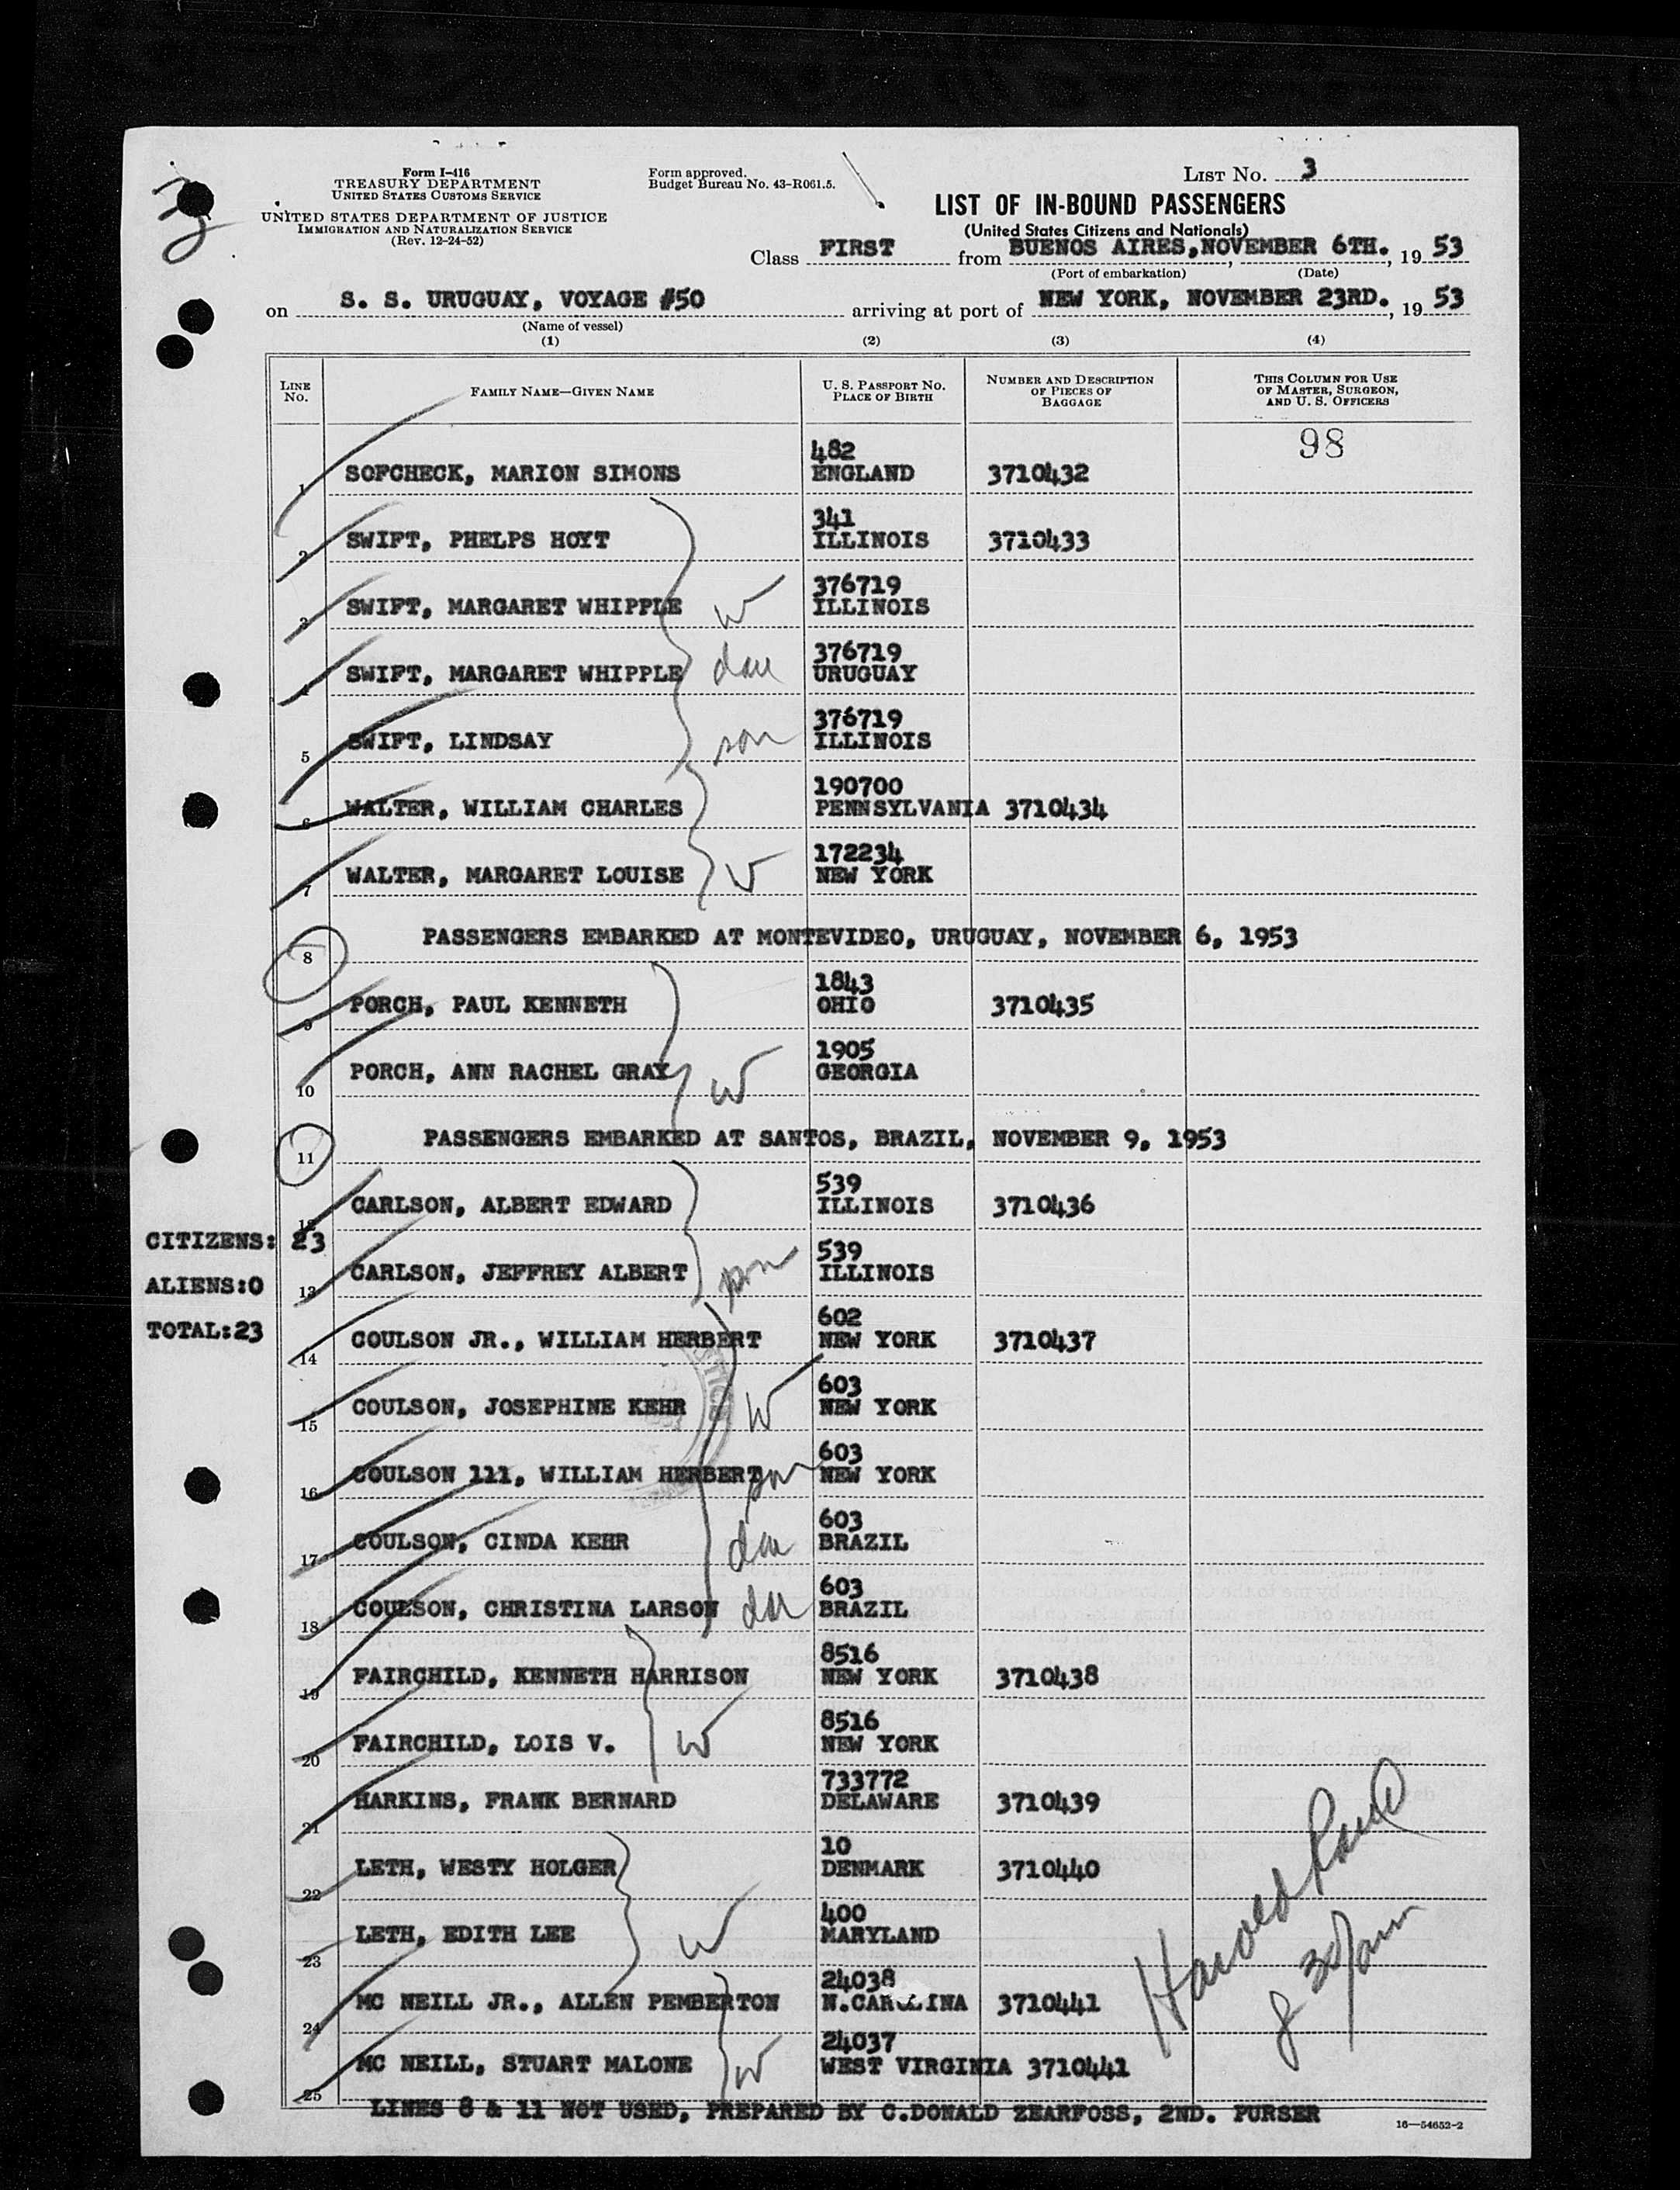 Form I-416
TREASURY DEPARTMENT
UNITED STATES CUSTOMS SERVICE
UNITED STATES DEPARTMENT OF JUSTICE
IMMIGRATION AND NATURALIZATION SERVICE
(Rev. 12-24-52)
Form approved.
Budget Bureau No. 43-R061.5.
LIST NO. 3
LIST OF IN-BOUND PASSENGERS
(United States Citizens and Nationals)
Class FIRST from BUENOS AIRES, NOVEMBER 6TH., 19 53
(Port of embarkation) (Date)
on S. S. URUGUAY, VOYAGE #50 arriving at port of NEW YORK, NOVEMBER 23RD., 19 53
(Name of vessel)
(1) (2) (3) (4)
LINE NO. FAMILY NAME—GIVEN NAME U. S. PASSPORT NO. PLACE OF BIRTH NUMBER AND DESCRIPTION OF PIECES OF BAGGAGE THIS COLUMN FOR USE OF MASTER, SURGEON, AND U. S. OFFICERS
98
482
1 SOFCHECK, MARION SIMONS ENGLAND 3710432
341
2 SWIFT, PHELPS HOYT ILLINOIS 3710433
376719
3 SWIFT, MARGARET WHIPPLE W ILLINOIS
376719
4 SWIFT, MARGARET WHIPPLE dau URUGUAY
376719
5 SWIFT, LINDSAY son ILLINOIS
190700
6 WALTER, WILLIAM CHARLES PENNSYLVANIA 3710434
172234
7 WALTER, MARGARET LOUISE W NEW YORK
8 PASSENGERS EMBARKED AT MONTEVIDEO, URUGUAY, NOVEMBER 6, 1953
1843
9 PORCH, PAUL KENNETH OHIO 3710435
1905
10 PORCH, ANN RACHEL GRAY W GEORGIA
11 PASSENGERS EMBARKED AT SANTOS, BRAZIL, NOVEMBER 9, 1953
539
12 CARLSON, ALBERT EDWARD ILLINOIS 3710436
CITIZENS: 23
539
13 CARLSON, JEFFREY ALBERT son ILLINOIS
ALIENS:0
602
TOTAL:23
14 COULSON JR., WILLIAM HERBERT NEW YORK 3710437
603
15 COULSON, JOSEPHINE KEHR W NEW YORK
603
16 COULSON 111, WILLIAM HERBERT son NEW YORK
603
17 COULSON, CINDA KEHR dau BRAZIL
603
18 COULSON, CHRISTINA LARSON dau BRAZIL
8516
19 FAIRCHILD, KENNETH HARRISON NEW YORK 3710438
8516
20 FAIRCHILD, LOIS V. W NEW YORK
733772
21 HARKINS, FRANK BERNARD DELAWARE 3710439
10
22 LETH, WESTY HOLGER DENMARK 3710440
400
23 LETH, EDITH LEE W MARYLAND
24038
24 MC NEILL JR., ALLEN PEMBERTON N.CAROLINA 3710441
24037
25 MC NEILL, STUART MALONE W WEST VIRGINIA 3710441
Harold
8 30/am
LINES 8 & 11 NOT USED, PREPARED BY C.DONALD ZEARFOSS, 2ND. PURSER
16—54652-2